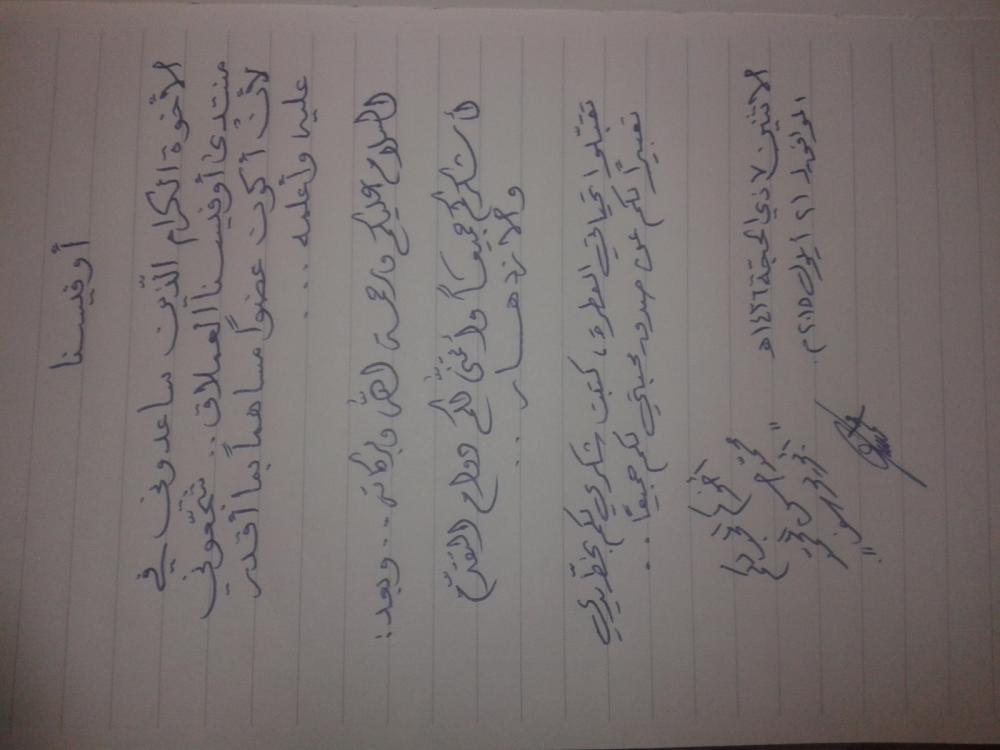 أوفيسنا
الأخوة الكرام الذين ساعدوني في
منتدى أوفيسنا العملاق.. شجّعوني
لأن أكون عضواً مساهماً بما أقدر
عليه وأعلمه ....
السلام عليكم ورحمة الله وبركاته... وبعد:
أشكركم جميعاً وأتمنى لكم دوام التقدّم
والازدهار...
تقبّلوا تحياتي العطرة، كتبت شكري لكم بخط يدي
تعبيراً لكم عن صدق محبتي لكم جميعاً..
الاثنين ٧ ذي الحجة ١٤٣٦ه
الموافق ٢١ أيلول ٢٠١٥م
أخوكم